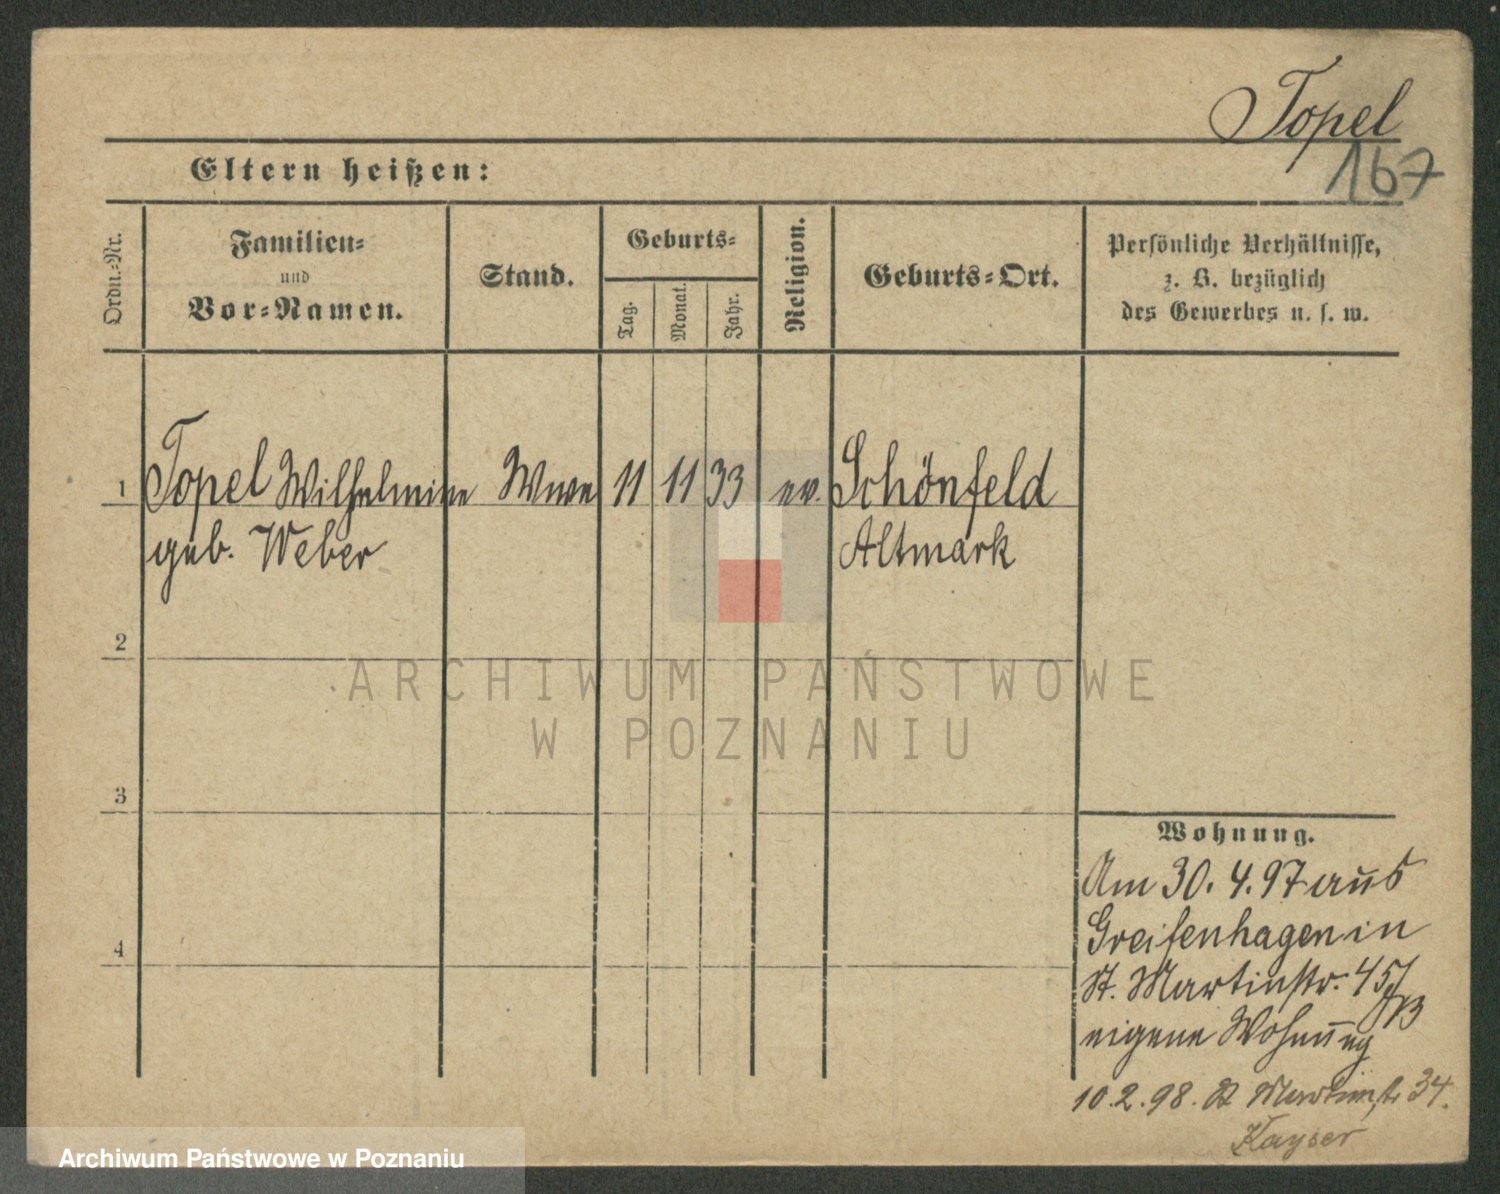 Topel
167
Eltern heißen:
Ordn.-Nr.
Familien-
und
Vor-Namen.
Stand.
Geburts-
Tag.
Monat.
Jahr.
Religion.
Geburts-Ort.
Persönliche Verhältnisse,
z. B. bezüglich
des Gewerbes u. s. w.
1 Topel Wilhelmine Wwe 11 11 33 ev. Schönfeld
geb. Weber Altmark
2
3
4
Wohnung.
Am 30. 4. 97 aus
Greifenhagen in
St. Martinstr. 45/
eigene Wohnung
10. 2. 98. St Martinstr 34.
Kayser
ARCHIWUM PAŃSTWOWE
W POZNANIU
Archiwum Państwowe w Poznaniu